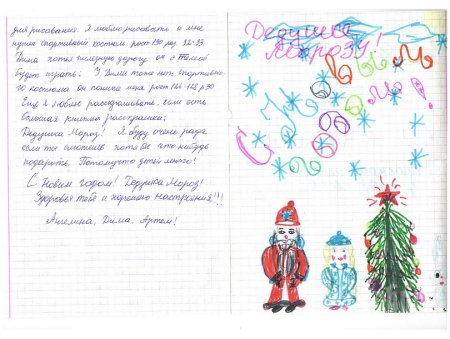 для рисования. Я люблю рисовать и мне
нужен спортивный костюм рост 130 раз.
Дима хотел железную дорогу он с Тёмой
будет играть! У Димы тоже нет спортивно-
го костюма он меня рост р 30
Ещё я люблю разукрашивать если есть
большая книжка раскраска;
Дедушка Мороз! Я буду очень рада
если ты сможешь хотя бы что-нибудь
подарить. Потому что детей много!
С Новым годом! Дедушка Мороз!
Здоровья тебе и хорошего настроения!!!
Ангелина, Дима, Артём!
Дедушке
Морозу!